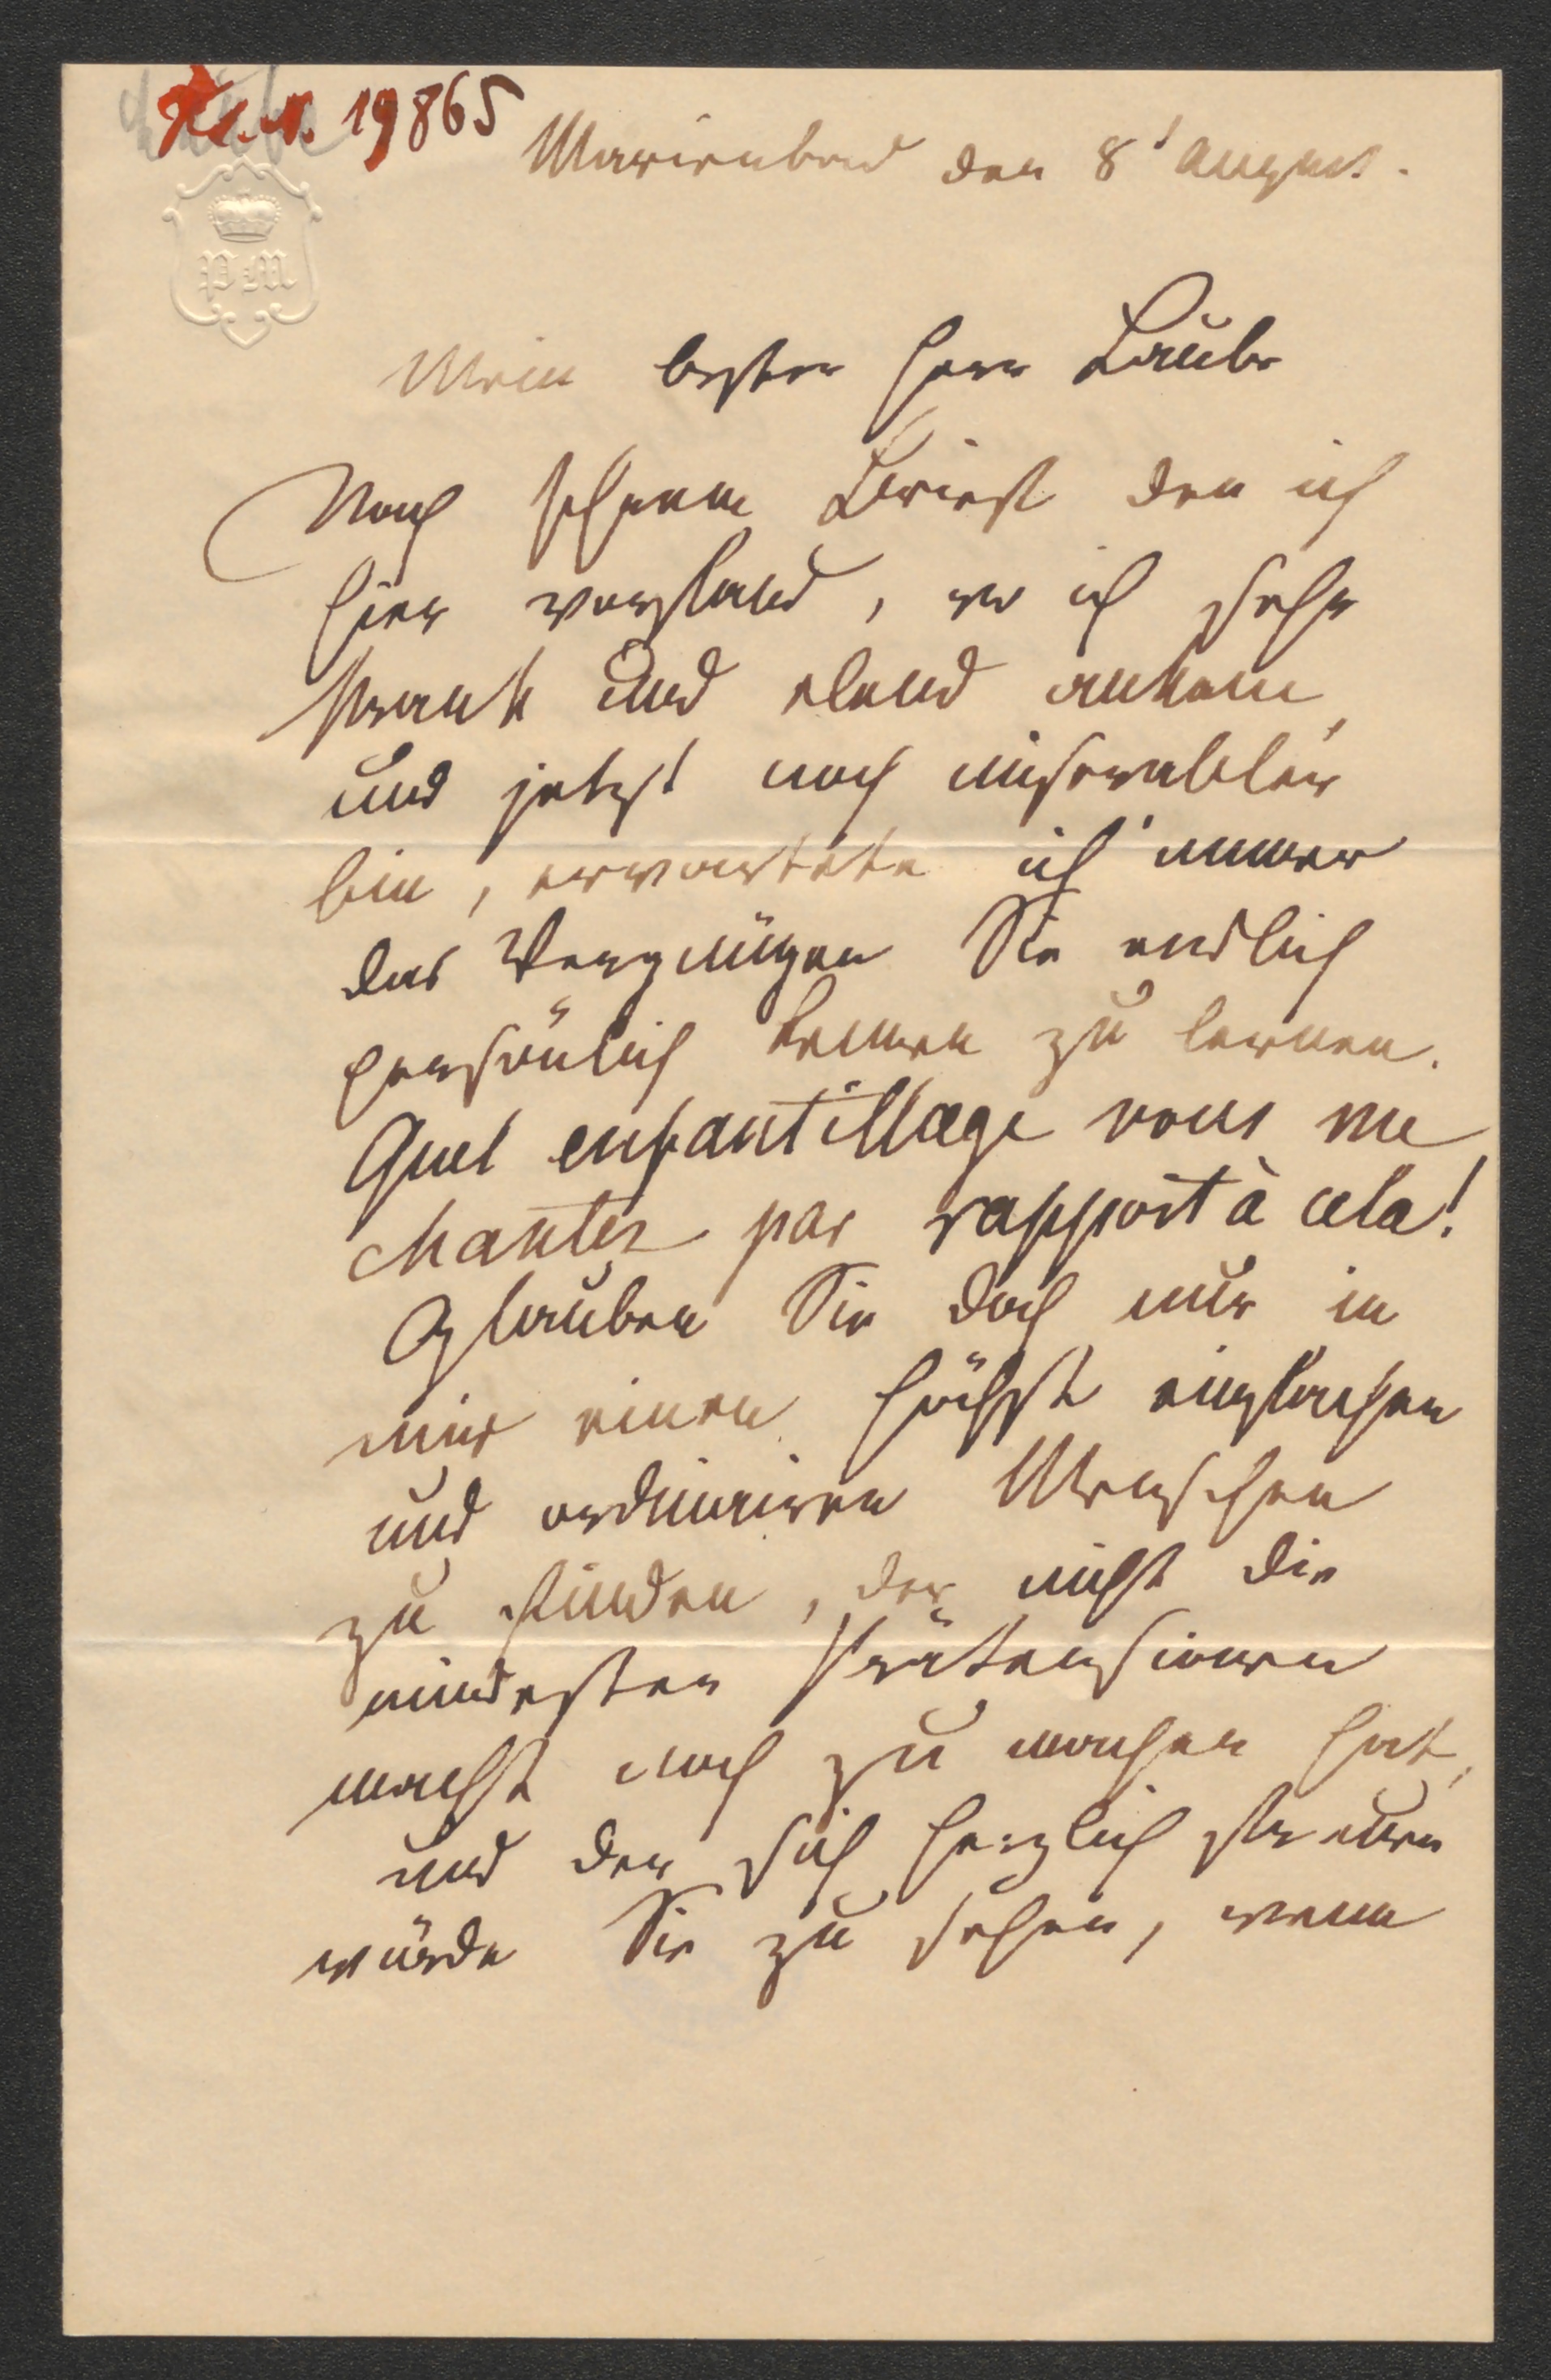 H.I.N. 19865
Marienbad den 8t August.
PM
Mein bester Herr Laube
Nach Brief den ich
hier vorfand, wo ich sehr
krank und elend ankam,
und jetzt noch miserabler
bin, erwartete ich immer
das Vergnügen Sie endlich
persönlich kennen zu lernen.
Quel enfantillage vous me
chantez par rapport à cela!
Glauben Sie doch nur in
mir einen höchst einfachen
und ordinairen Menschen
zu finden, der nicht die
mindesten Prätensionen
macht noch zu machen hat,
und der sich herzlich freuen
würde Sie zu sehen, wenn